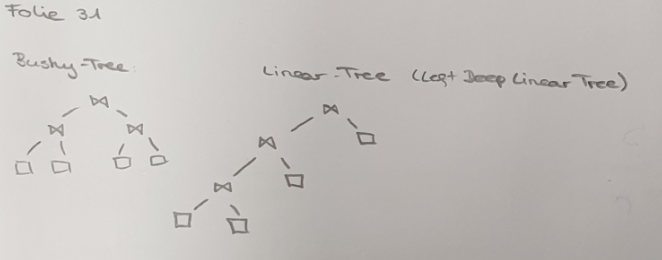 Folie 31
Bushy-Tree:
Linear-Tree (Left Deep Linear Tree)